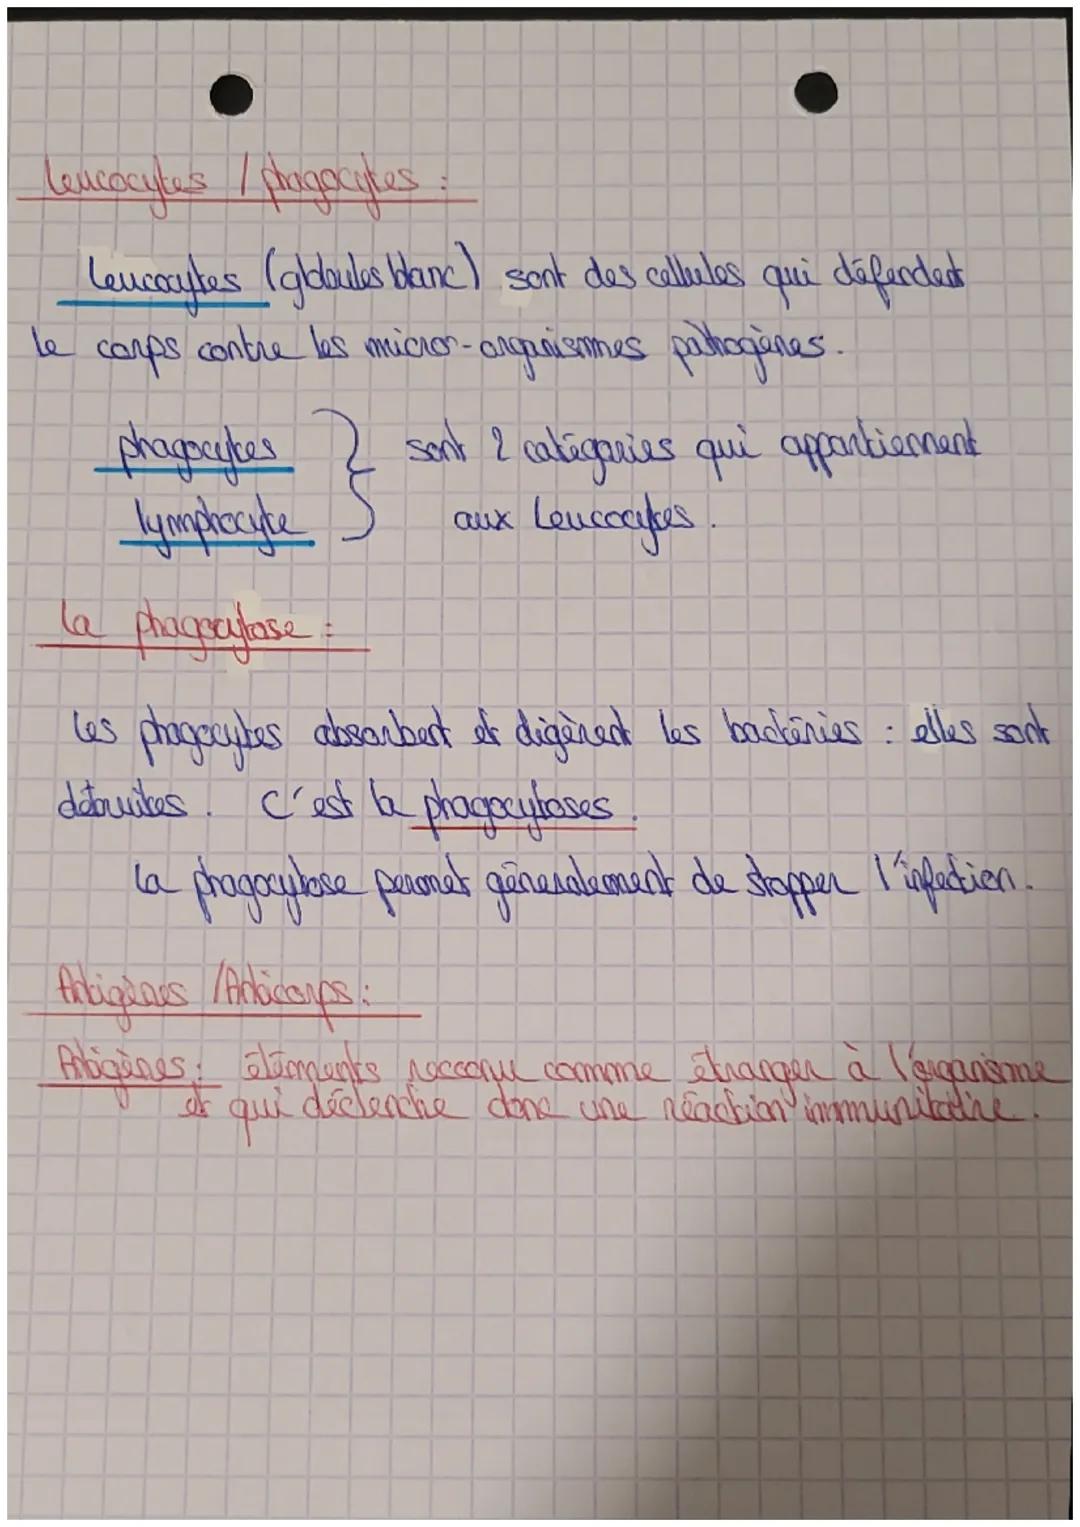 Leucocytes / phagocytes :
Leucocytes (globules blanc) sont des cellules qui défendent
le corps contre les micror-organismes pathogènes.
phagocytes } sont 2 catégories qui appartiennent
lymphocyte aux Leucocytes.
La phagocytose :
Les phagocytes absorbent et digèrent les bactéries : elles sont
détruites. C'est la phagocytoses.
La phagocytose permet géneralement de stopper l'infection.
Antigènes / Anticorps :
Antigènes : éléments reconnu comme étranger à l'organisme
et qui déclenche donc une réaction immunitaire.